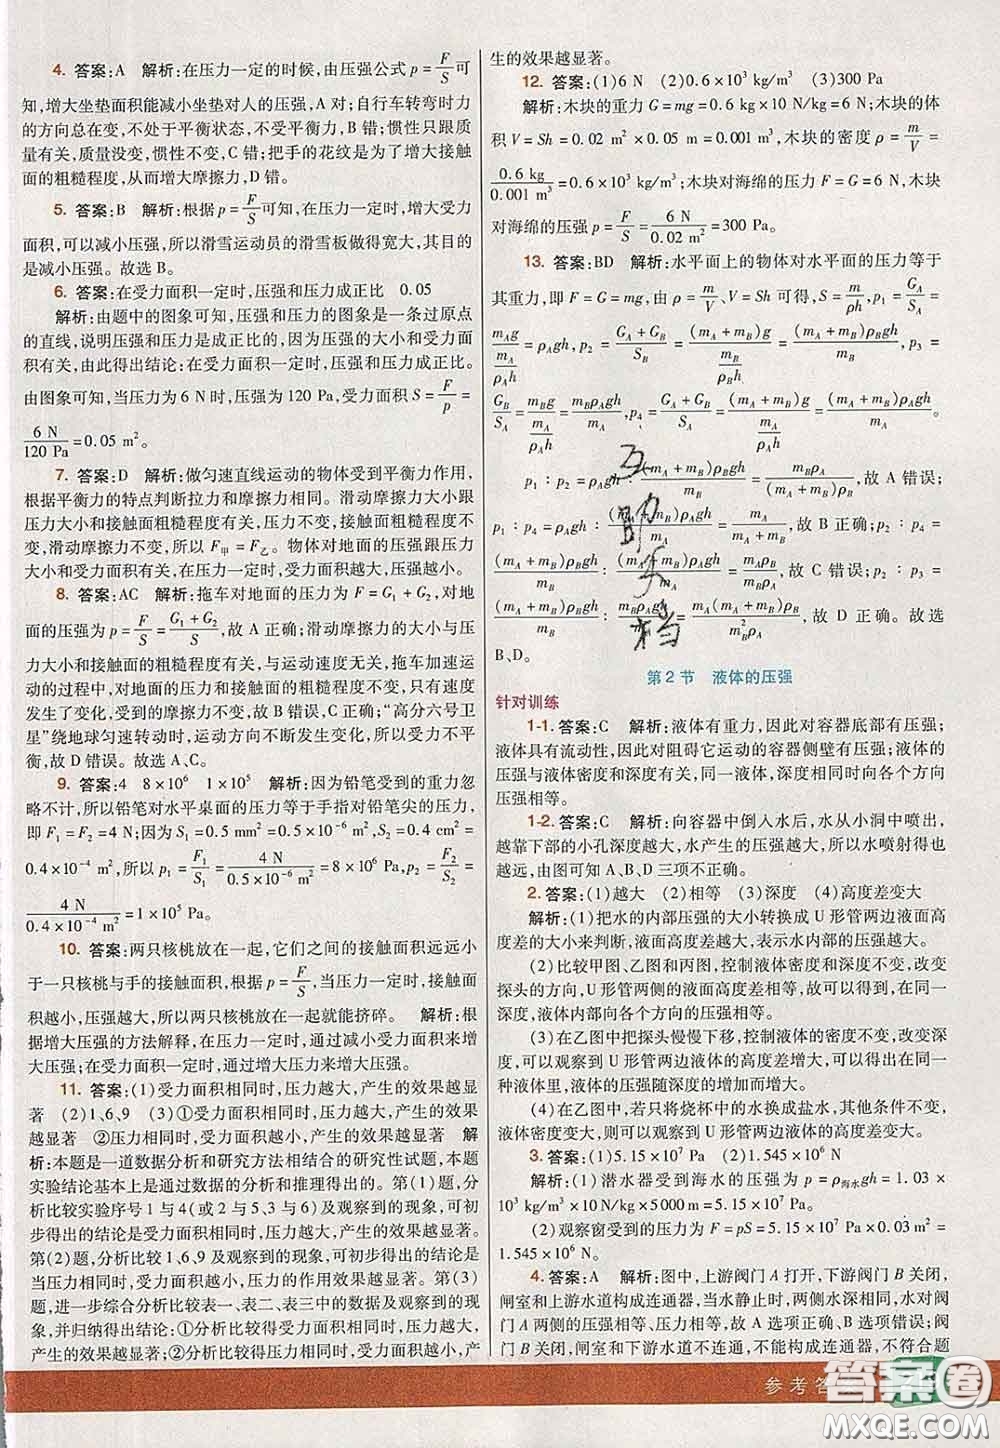 4. 答案:A 解析:在压力一定的时候,由压强公式 p=F/S 可
知,增大坐垫面积能减小坐垫对人的压强,A 对;自行车转弯时力
的方向总在变,不处于平衡状态,不受平衡力,B 错;惯性只跟
质量有关,质量没变,惯性不变,C 错;把手的花纹是为了增大接触
面的粗糙程度,从而增大摩擦力,D 错。
5. 答案:B 解析:根据 p=F/S 可知,在压力一定时,增大受力
面积,可以减小压强,所以滑雪运动员的滑雪板做得宽大,其目的
是减小压强。故选 B。
6. 答案:在受力面积一定时,压强和压力成正比 0.05
解析:由题中的图象可知,压强和压力的图象是一条过原点
的直线,说明压强和压力是成正比的,因为压强的大小和受力面
积有关,由此得出结论:在受力面积一定时,压强和压力成正比。
由图象可知,当压力为 6 N 时,压强为 120 Pa,受力面积 S=F/p=
6 N/120 Pa=0.05 m²。
7. 答案:D 解析:做匀速直线运动的物体受到平衡力作用,
根据平衡力的特点判断拉力和摩擦力相同。滑动摩擦力大小跟
压力大小和接触面粗糙程度有关,压力不变,接触面粗糙程度不
变,滑动摩擦力不变,所以 F甲=F乙。物体对地面的压强跟压力
大小和受力面积有关,在压力一定时,受力面积越大,压强越小。
8. 答案:AC 解析:拖车对地面的压力为 F=G₁+G₂,对地
面的压强为 p=F/S=(G₁+G₂)/S,故 A 正确;滑动摩擦力的大小与压
力大小和接触面的粗糙程度有关,与运动速度无关,拖车运动时
对地面的压力和接触面的粗糙程度没有变化,因此尽管运动速
度发生了变化,摩擦力不变,故 B 错误、C 正确;“高分六号卫
星”绕地球匀速转动时,运动方向不断发生变化,所以受力不平
衡,故 D 错误。故选 A、C。
9. 答案:4 8×10⁶ 1×10⁵ 解析:因为铅笔受到的重力忽
略不计,所以铅笔对水平桌面的压力等于手指对铅笔尖的压力,
即 F₁=F₂=4 N;因为 S₁=0.5 mm²=0.5×10⁻⁶ m²,S₂=0.4 cm²=
0.4×10⁻⁴ m²,所以 p₁=F₁/S₁=4 N/(0.5×10⁻⁶ m²)=8×10⁶ Pa,p₂=F₂/S₂=
4 N/(0.4×10⁻⁴ m²)=1×10⁵ Pa。
10. 答案:两只核桃放在一起,它们之间的接触面积远远小
于一只核桃与手的接触面积,根据 p=F/S,当压力一定时,接触面
积越小,压强越大,所以两只核桃放在一起就能挤碎。 解析:根
据增大压强的方法解释,在压力一定时,通过减小受力面积来增
大压强;在受力面积一定时,通过增大压力来增大压强。
11. 答案:(1)受力面积相同时,压力越大,产生的效果越显
著 (2)1、6、9 (3)①受力面积相同时,压力越大,产生的效果
越显著 ②压力相同时,受力面积越小,产生的效果越显著 解
析:本题是一道数据分析和研究方法相结合的研究性试题,本题
实验结论基本上是通过数据的分析和推理得出的。第(1)题,分
析比较实验序号 1 与 4(或 2 与 5、3 与 6)及观察到的现象,可初
步得出的结论是受力面积相同时,压力越大,产生的效果越显著。
第(2)题,分析比较 1、6、9 及观察到的现象,可初步得出的结论是
当压力相同时,受力面积越小,压力的作用效果越显著。第(3)
题,进一步综合分析比较表一、表二、表三中的数据及观察到的现
象,并归纳得出结论:①分析比较得受力面积相同时,压力越大,
产生的效果越显著;②分析比较得出压力相同时,受力面积越小,产
生的效果越显著。
12. 答案:(1)6 N (2)0.6×10³ kg/m³ (3)300 Pa
解析:木块的重力 G=mg=0.6 kg×10 N/kg=6 N;木块的体
积 V=Sh=0.02 m²×0.05 m=0.001 m³,木块的密度 ρ=m/V=
0.6 kg/0.001 m³=0.6×10³ kg/m³;木块对海绵的压力 F=G=6 N,木块
对海绵的压强 p=F/S=6 N/0.02 m²=300 Pa。
13. 答案:BD 解析:水平面上的物体对水平面的压力等于
其重力,即 F=G=mg,由 ρ=m/V、V=Sh 可得,S=m/ρh,p₁=G_A/S_A=
m_A g/(m_A/ρ_A h)=ρ_A gh,p₂=(G_A+G_B)/S_B=(m_A+m_B)g/(m_B/ρ_B h)=(m_A+m_B)ρ_B gh/m_B,p₃=
G_B/S_A=m_B g/(m_A/ρ_A h)=m_B ρ_A gh/m_A,p₄=(G_A+G_B)/S_A=(m_A+m_B)g/(m_A/ρ_A h)=(m_A+m_B)ρ_A gh/m_A。
p₁∶p₂=ρ_A gh∶(m_A+m_B)ρ_B gh/m_B=m_B ρ_A/(m_A+m_B)ρ_B,故 A 错误;
p₁∶p₄=ρ_A gh∶(m_A+m_B)ρ_A gh/m_A=m_A/(m_A+m_B),故 B 正确;p₂∶p₄=
(m_A+m_B)ρ_B gh/m_B∶(m_A+m_B)ρ_A gh/m_A=m_A ρ_B/m_B ρ_A,故 C 错误;p₂∶p₃=
(m_A+m_B)ρ_B gh/m_B∶m_B ρ_A gh/m_A=m_A(m_A+m_B)ρ_B/m_B² ρ_A,故 D 正确。故选
B、D。
互助文档
第 2 节 液体的压强
针对训练
1-1. 答案:C 解析:液体有重力,因此对容器底部有压强;
液体具有流动性,因此对阻碍它运动的容器侧壁有压强;液体的
压强与液体密度和深度有关,同一液体,相同深度时向各个方向
压强相等。
1-2. 答案:C 解析:向容器中倒入水后,水从小洞中喷出,
越靠下部的小孔深度越大,水产生的压强越大,所以水喷射得也
越远,由图可知 A、B、D 三项不正确。
2. 答案:(1)越大 (2)相等 (3)深度 (4)高度差变大
解析:(1)把水的内部压强的大小转换成 U 形管两边液面高
度差的大小来判断,液面高度差越大,表示水内部的压强越大。
(2)比较甲图、乙图和丙图,控制液体密度和深度不变,改变
探头的方向,U 形管两侧的液面高度差相等,故可以得到,在同一
深度,液体内部向各个方向的压强相等。
(3)在乙图中把探头慢慢下移,控制液体的密度不变,改变深
度,可以观察到 U 形管两边液体的高度差增大,可以得出在同一
种液体里,液体的压强随深度的增加而增大。
(4)在乙图中,若只将烧杯中的水换成盐水,其他条件不变,
液体密度变大,则可以观察到 U 形管两边液体的高度差变大。
3. 答案:(1)5.15×10⁷ Pa (2)1.545×10⁶ N
解析:(1)潜水器受到海水的压强为 p=ρ海水gh=1.03×
10³ kg/m³×10 N/kg×5 000 m=5.15×10⁷ Pa。
(2)观察窗受到的压力为 F=pS=5.15×10⁷ Pa×0.03 m²=
1.545×10⁶ N。
4. 答案:A 解析:图中,上游阀门 A 打开,下游阀门 B 关闭,
闸室和上游水道构成连通器,当水静止时,两侧水深相等,水对阀
门 A 两侧的压强相等、压力相等,故 A 符合题意,C 错误;阀
门 B 关闭,闸室和下游水道不连通,不能构成连通器,不符合题
参考答
答案圈
MXQE.COM